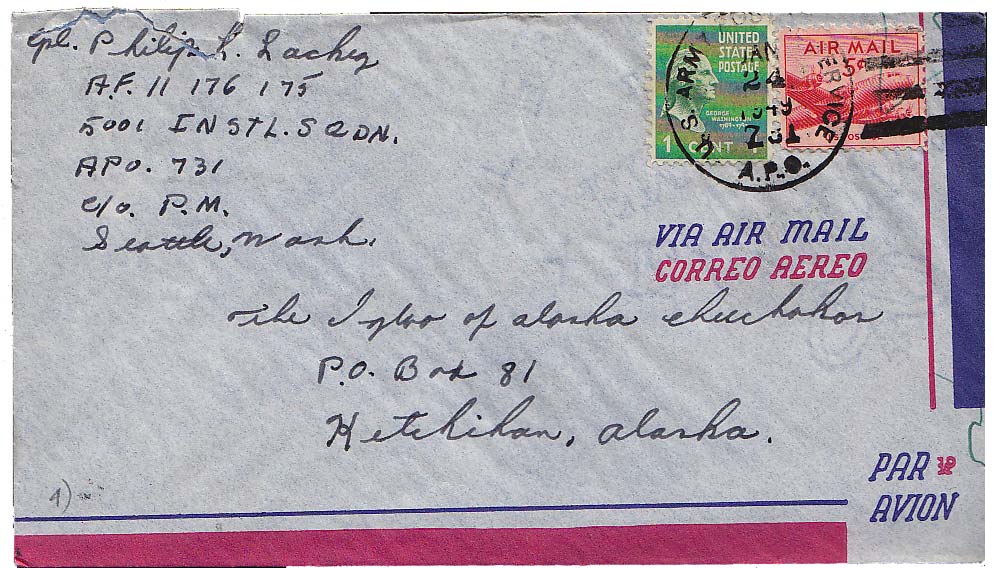 Cpl. Philip L. Lackey
A.F. 11 176 175
5001 INSTL. SQDN.
APO. 731
c/o. P.M.
Seattle, Wash.
UNITED
STATES
POSTAGE
GEORGE
WASHINGTON
1 CENT 1
AIR MAIL
5¢
U.S. ARMY SERVICE
JAN
24
1949
731
A.P.O.
VIA AIR MAIL
CORREO AEREO
The Igloo of Alaska Chuckokar
P.O. Box 81
Ketchikan, Alaska.
PAR
AVION
1)